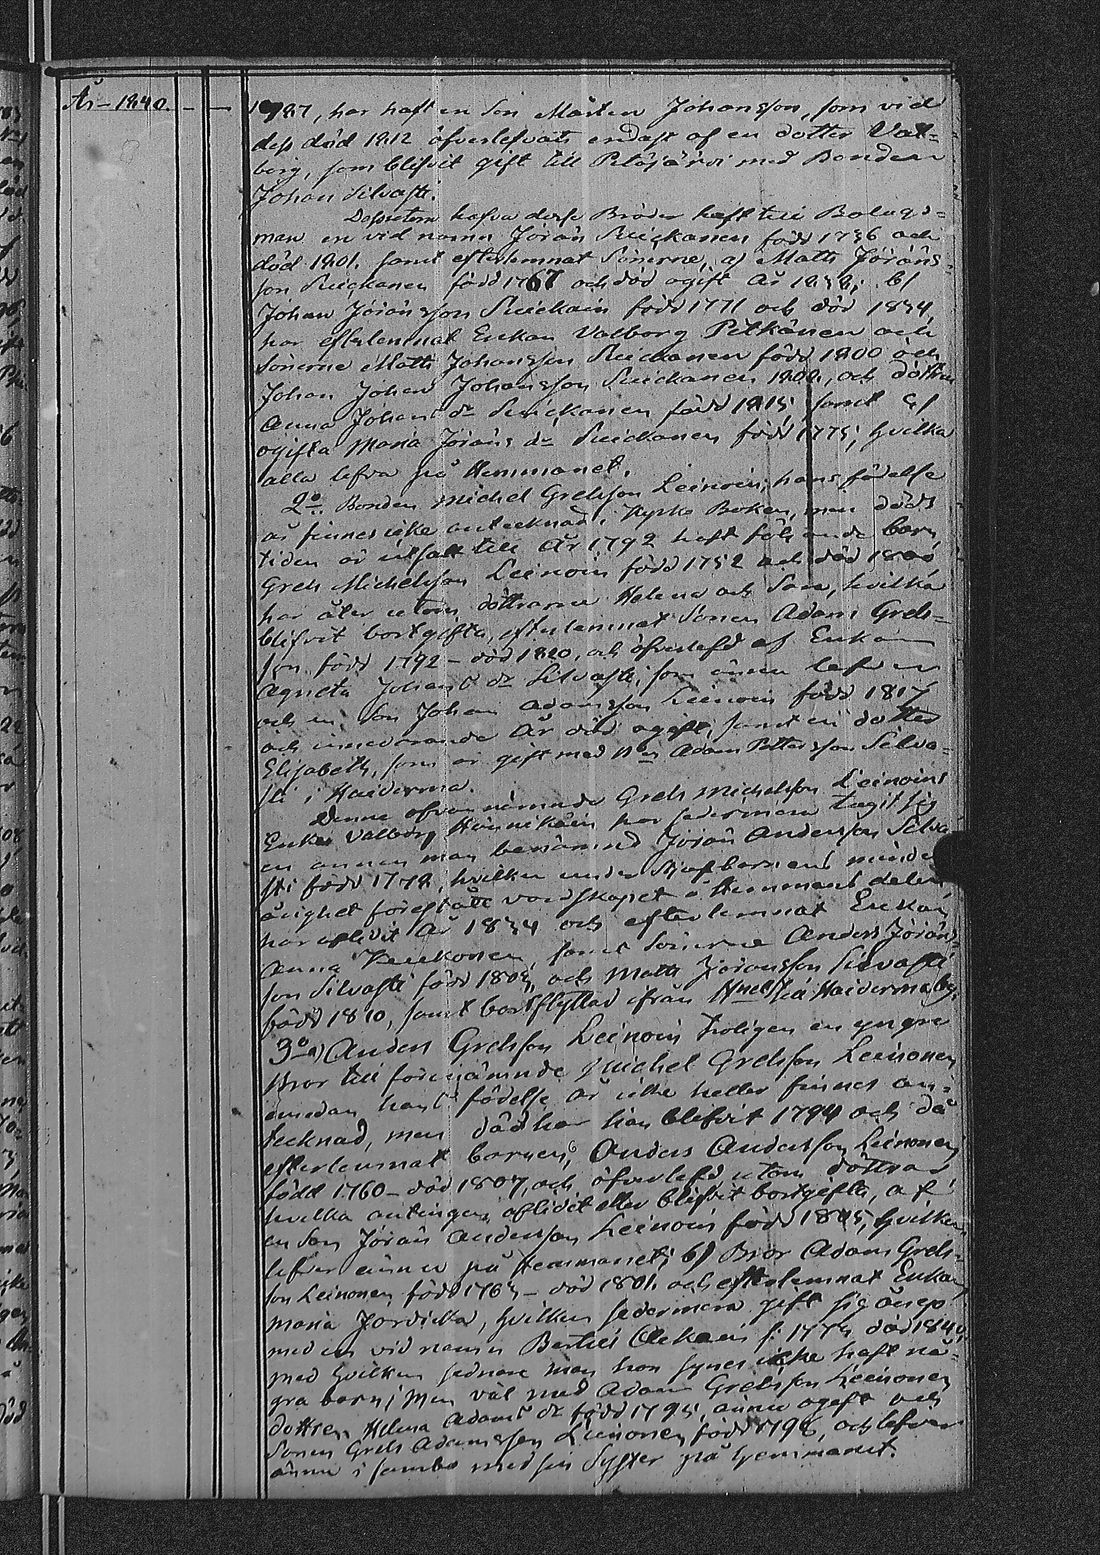 År 1840. - -
1787, har haft en Son Mårten Johansson, som vid
dess död 1812 öfverlefvats endast af en dotter Val=
borg, som blifvit gift till Pelösjärvi med Bonden
Johan Silvasti.
Dessutom hafva desse Bröder haft till Bolags=
man en vid namn Jöran Suickanen född 1736 och
död 1801. samt efterlemnat Sönerne, a) Matts Jörans=
son Suickanen född 1767 och död ogift År 1838; b)
Johan Jöransson Suickain född 1771 och död 1834,
har efterlemnat Enkan Valborg Pitkänen och
Sönerne Matts Johansson Suickanen född 1800 och
Johan Johan Johansson Suickanen 1808, och dottren
Anna Johans dr Suickanen född 1815; samt c)
ogifta Maria Jörans dr Suickanen född 1775; hvilka
alla lefva på Hemmanet.
2o. Bonden Michel Grelsson Leinoin, hans födelse
år finnes icke antecknad i Kyrko Boken, men döds
tiden är utsatt till År 1792 haft följande barn
Grels Michelsson Leinoin född 1752 och död 1800
har åter utom döttrarne Helena och , hvilka
blifvit bortgifta, efterlemnat Sonen Adam Grels=
son född 1792 - död 1820, och öfverlefd af Enkan
Agneta Johans dr Silvasti, som ännu lefver
och en Son Johan Adamsson Leinoin född 1817
och innevarande År död ogift, samt en dotter
Elisabeth, som är gift med Adam Pettersson Silva=
sti i Haiderma.
Denne ofvannämnde Grels Michelsson Leinoins
Enka Valborg Hännikäin har sedermera tagit sig
en annan man benämnd Jöran Andersson Silva
sti född 1772, hvilken under Stjufbarnens minder
årighet förestått vårdskapet å Hemmans delen
har aflidit År 1834 och efterlemnat Enkan
Anna Keickonen, samt Sönerne Anders Jörans=
son Silvasti född 1803, och Matts Jöransson Silvasti
född 1810, samt bortflyttad ifrån i Haiderma by.
3o a) Anders Grelsson Leinoin troligen en yngre
Bror till förenämnde Michel Grelsson Leinonen
emedan hans födelse år icke heller finnes an=
tecknad, men död har han blifvit 1794 och då
efterlemnat barnen, Anders Andersson Leinonen
född 1760 - död 1807, och öfverlefd utom döttrar
hvilka antingen aflidit eller blifvit bortgifta, af
en Son Jöran Andersson Leinoin född 1805, hvilken
lefver ännu på hemmanet; b) Bror Adam Grels=
son Leinonen född 1763 - död 1801. och efterlemnat Enkan
Maria Jordicka, hvilken sedermera gift sig ånyo
med en vid namn Bertil f. 1774 död 1840,
med hvilken sednare man hon synes icke haft nå=
gra barn; Men väl med Adam Grelsson Leinonen
dottren Helena Adams dr född 1795, ännu ogift och
Sonen Grels Adamsson Leinonen född 1798, och lefver
ännu i sambo med sin Syster på Hemmanet.